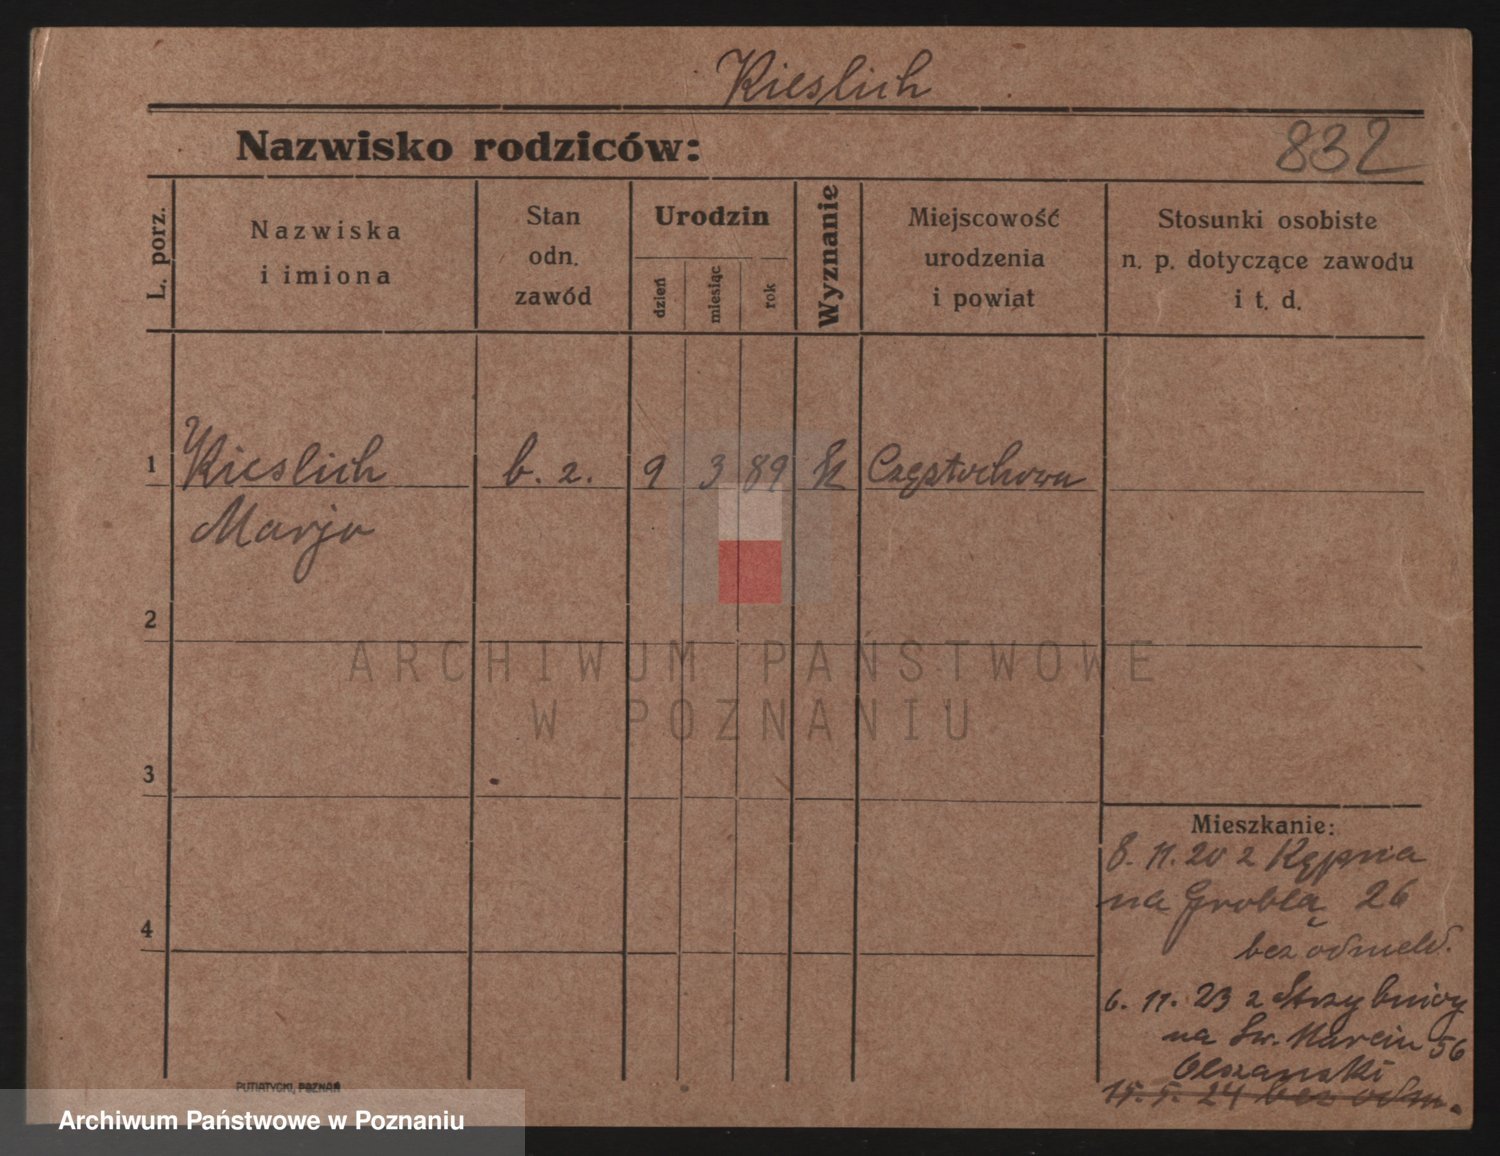 Kieslich
Nazwisko rodziców:
832
L. porz.
Nazwiska
i imiona
Stan
odn.
zawód
Urodzin
dzień
miesiąc
rok
Wyznanie
Miejscowość
urodzenia
i powiat
Stosunki osobiste
n. p. dotyczące zawodu
i t. d.
1 Kieslich b. z. 9 3 89 K Częstochowa
Marja
2
3
4
Mieszkanie:
8. 11. 20 z Kępna
na Groblą 26
bez odmeld.
6. 11. 23 z
na Św. Marcin 56
Olszanski
15. 5. 24 bez odm.
PUTIATYCKI, POZNAŃ
ARCHIWUM PAŃSTWOWE
W POZNANIU
Archiwum Państwowe w Poznaniu